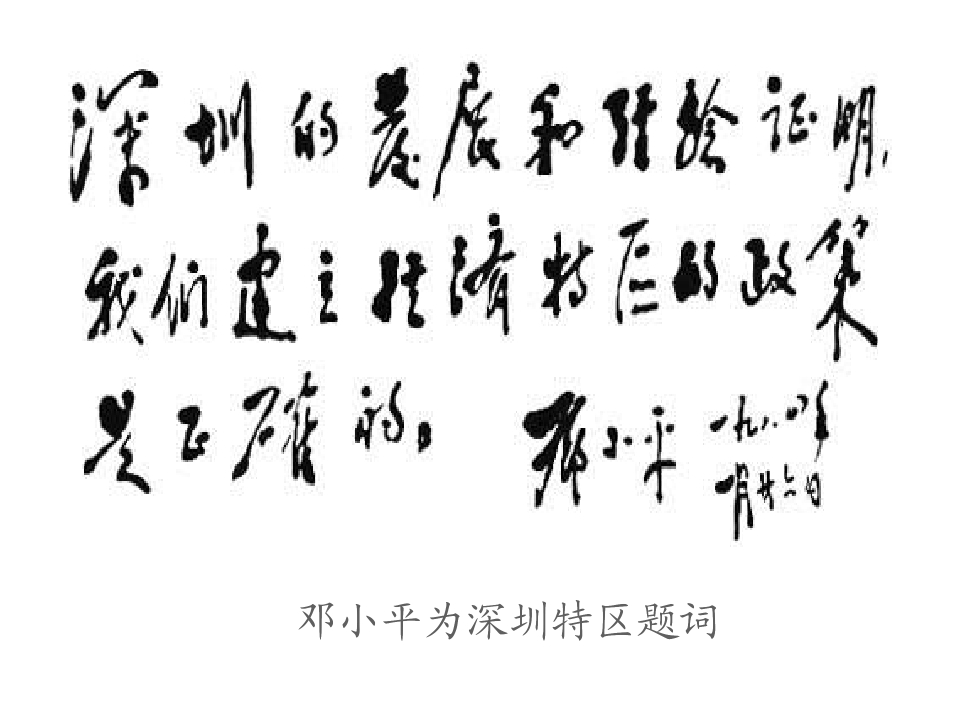 深圳的发展和经验证明，
我们建立经济特区的政策
是正确的。
邓小平
一九八四年
一月廿六日
邓小平为深圳特区题词